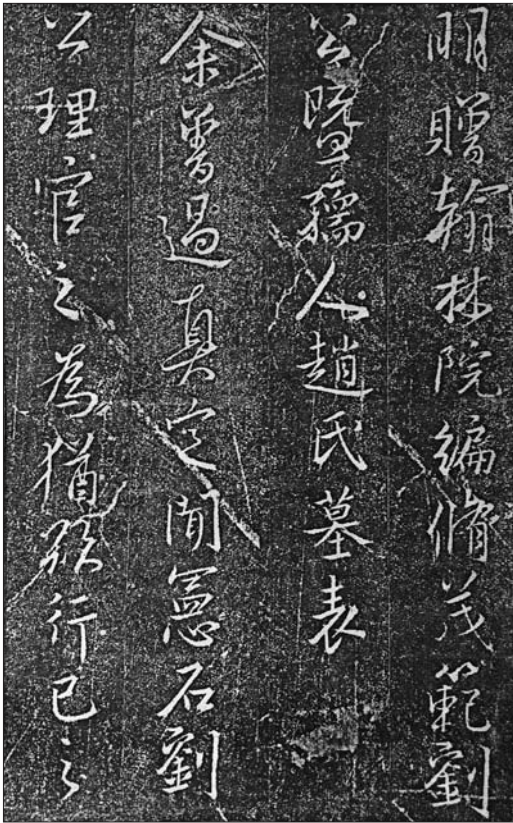 明贈翰林院編脩茂範劉
公曁孺人趙氏墓表
余嘗過真定聞憲石劉
公理官之為猶行已之